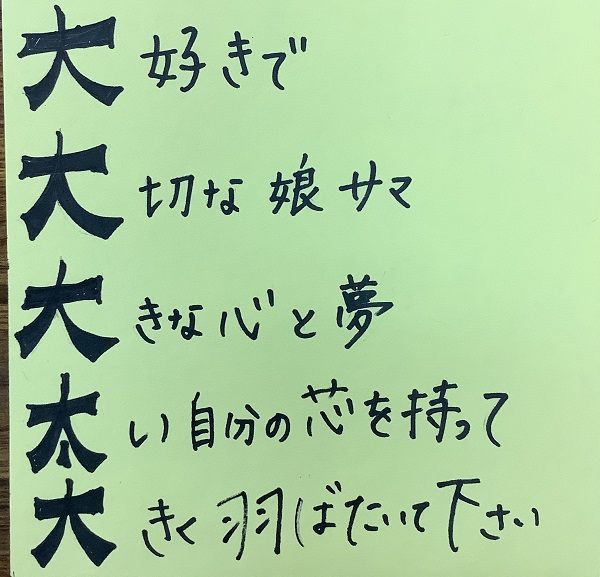 大好きで
大切な娘サマ
大きな心と夢
太い自分の芯を持って
大きく羽ばたいて下さい